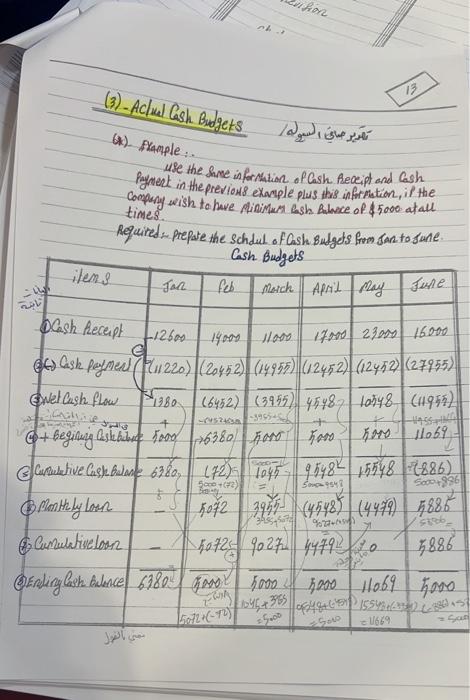 13
(3)- Actual Cash Budgets
تقدير صافي السيولة/
(*) Example:.
use the same information of Cash Receipt and Cash
Payment in the previous example plus this information, if the
Company wish to have Minimum Cash Balance of $5000 at all
times.
Required:- prepare the schdul of Cash Budgets from Jan to June.
Cash Budgets
items Jan Feb March April May June
① Cash Receipt 12600 14000 11000 17000 23000 16000
②(-) Cash Payment (11220) (20452) (14955) (12452) (12452) (27955)
③ Net Cash flow 1380 (6452) (3955) 4548 10548 (11955)
④ + Beginig Cash 5000 6380 5000 5000 5000 11069
⑤ Cumulative Cash Balance 6380 (72) 1045 9548 15548 (886)
5000+(72) 5000+886
⑥ Monthly loan - 5072 3955 (4548) (4479) 5886
⑦ Cumulative loan - 5072 9027 4479 0 5886
⑧ Ending Cash Balance 6380 5000 5000 5000 11069 5000
5072+(-72) = 5000 = 5000 = 11669